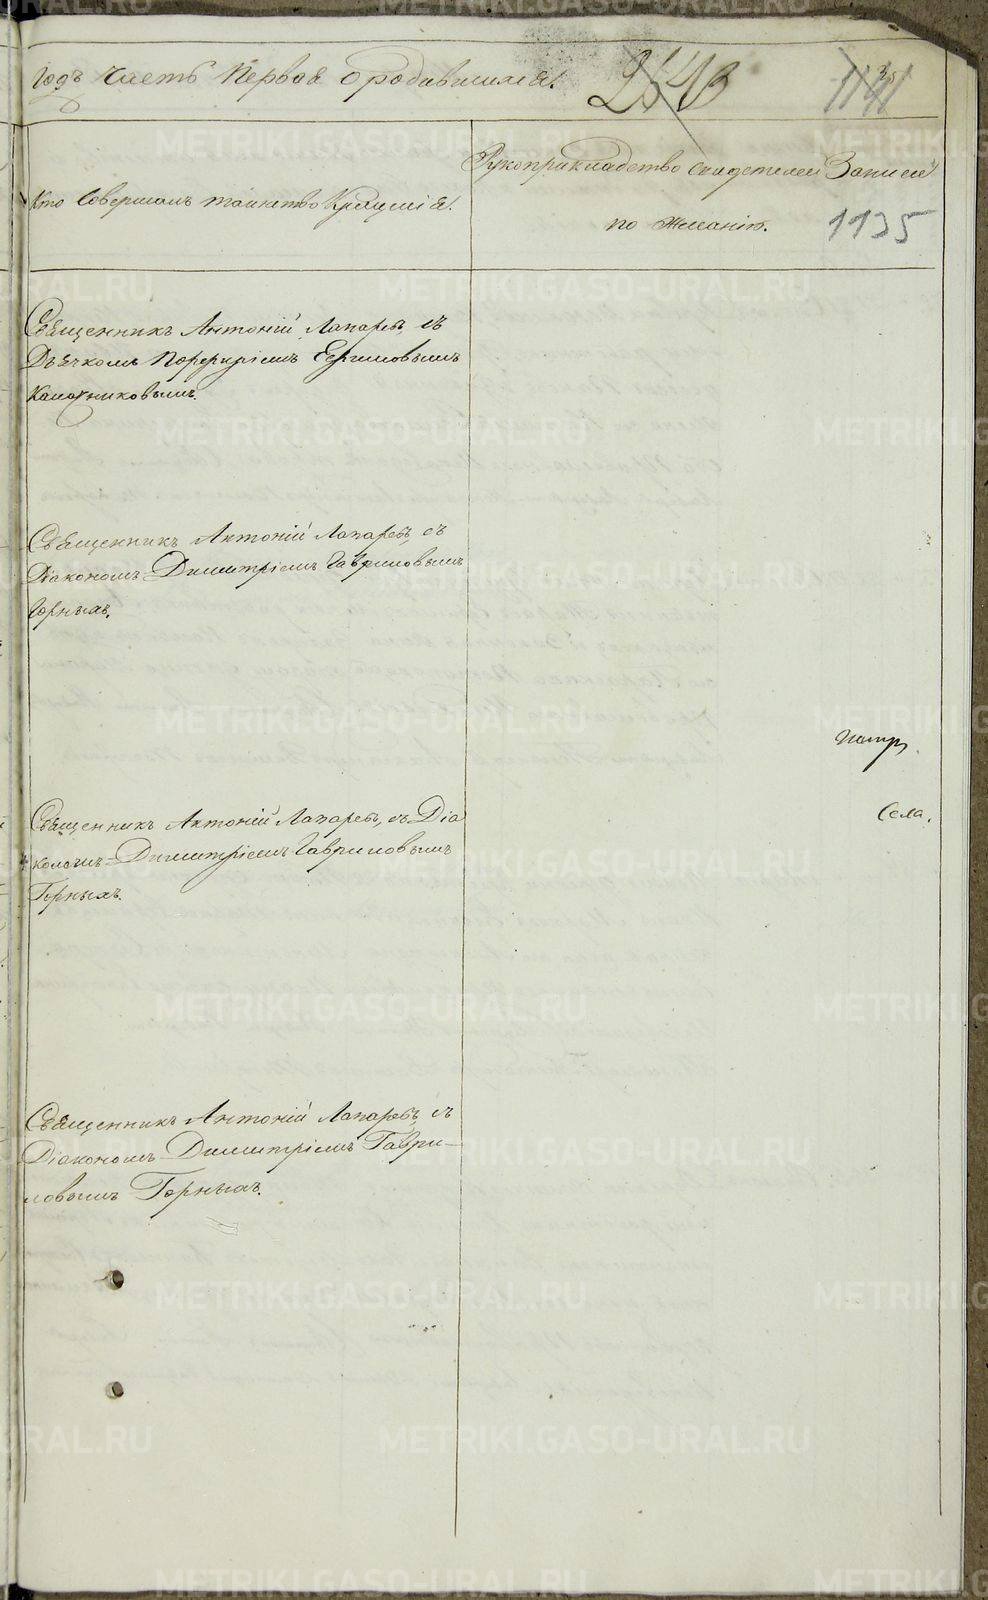 годъ часть Первая о родившихся.
2543
1135
Кто Совершалъ таинство Крещенія.
Рукоприкладство свидетелей Записи
по желанію.
Священникъ Антоній Лапаревъ, съ
Дьячкомъ Порфиріемъ
Священникъ Антоній Лапаревъ, съ
Діакономъ Димитріемъ Гавриловымъ
Горныхъ.
Священникъ Антоній Лапаревъ, съ Діа
кономъ Димитріемъ Гавриловымъ
Горныхъ.
Села.
Священникъ Антоній Лапаревъ, съ
Діакономъ Димитріемъ Гаври-
ловымъ Горныхъ.
METRIKI.GASO-URAL.RU